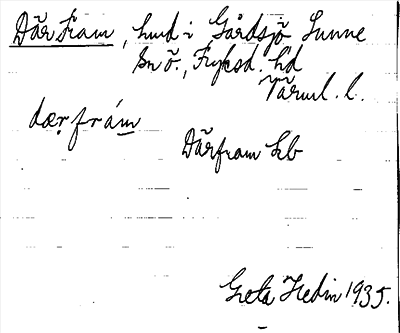 Därfram, hmd i Gårdsjö Sunne
sn Ö., Fryksd. hd
Värml. l.
dærfrám
Därfram kb
Greta Hedin 1935.